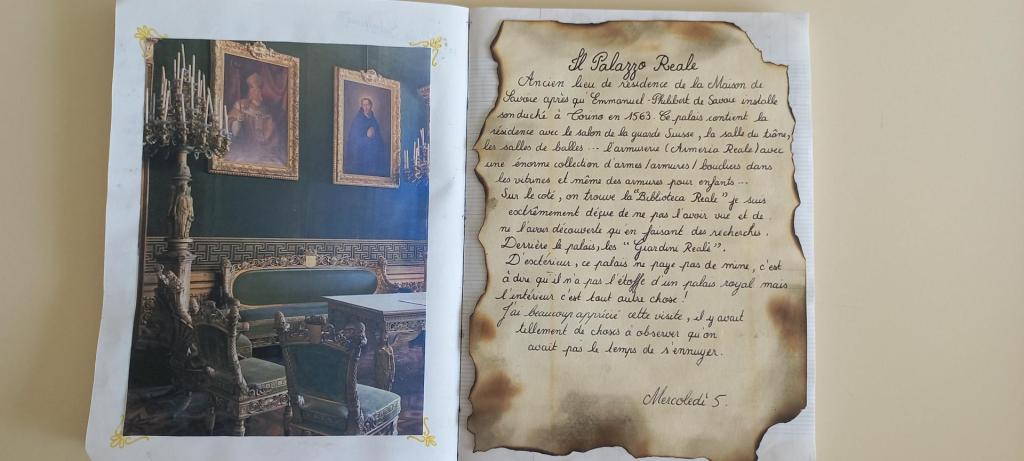 Il Palazzo Reale
Ancien lieu de résidence de la Maison de
Savoie après qu'Emmanuel-Philibert de Savoie installe
son duché à Torino en 1563. Ce palais contient la
résidence avec le salon de la guarde Suisse, la salle du trône,
les salles de balles ... l'armurerie (Armeria Reale) avec
une énorme collection d'armes/armures/boucliers dans
les vitrines et même des armures pour enfants...
Sur le coté, on trouve la "Biblioteca Reale" je suis
extrêmement déçue de ne pas l'avoir vue et de
ne l'avoir découverte qu'en faisant des recherches.
Derrière le palais, les "Giardini Reali".
D'extérieur, ce palais ne paye pas de mine, c'est
à dire qu'il n'a pas l'étoffe d'un palais royal mais
l'intérieur c'est tout autre chose !
J'ai beaucoup apprécié cette visite, il y avait
tellement de choses à observer qu'on
avait pas le temps de s'ennuyer.
Mercoledì 5.